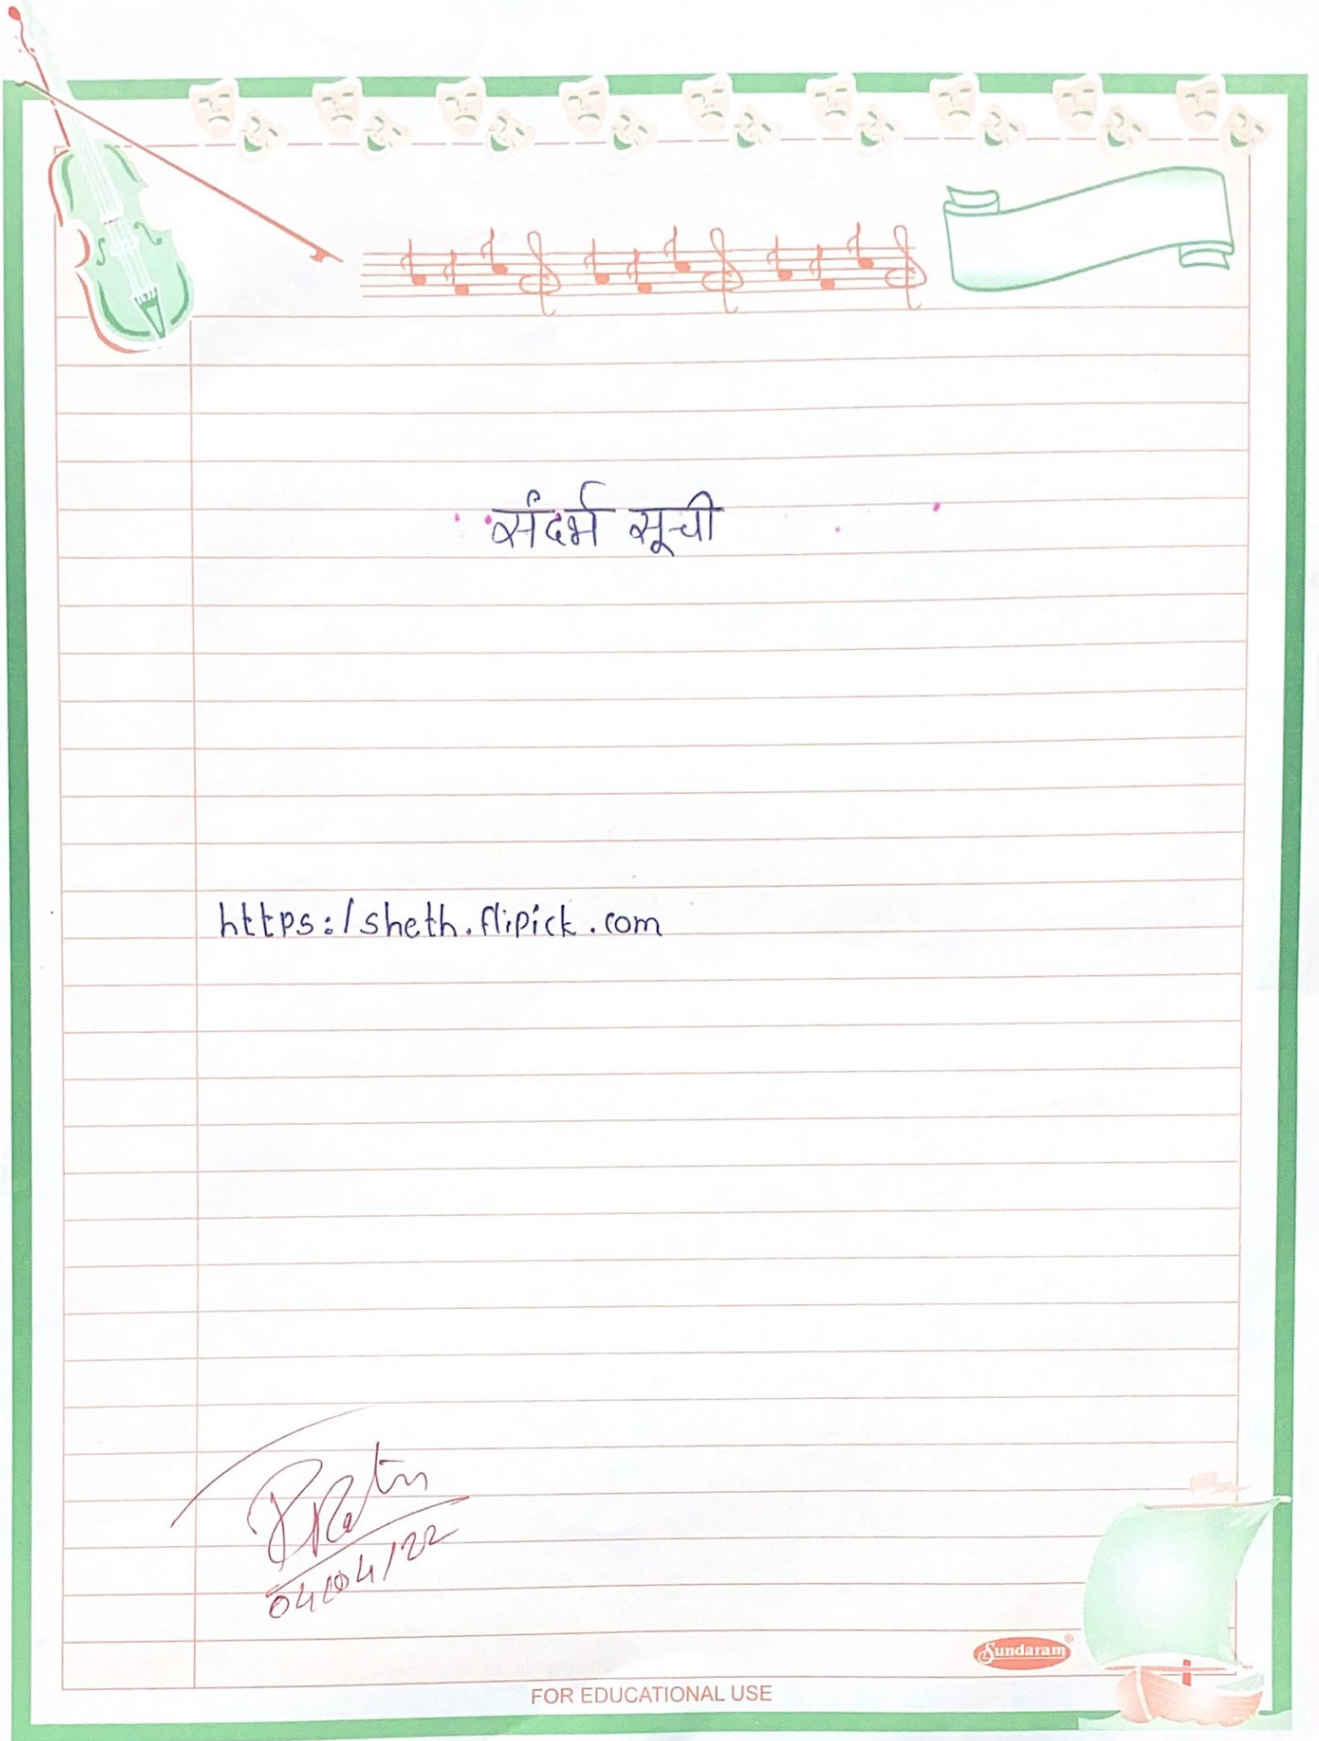 संदर्भ सूची
https:/sheth.flipick.com
04/04/22
Sundaram®
FOR EDUCATIONAL USE